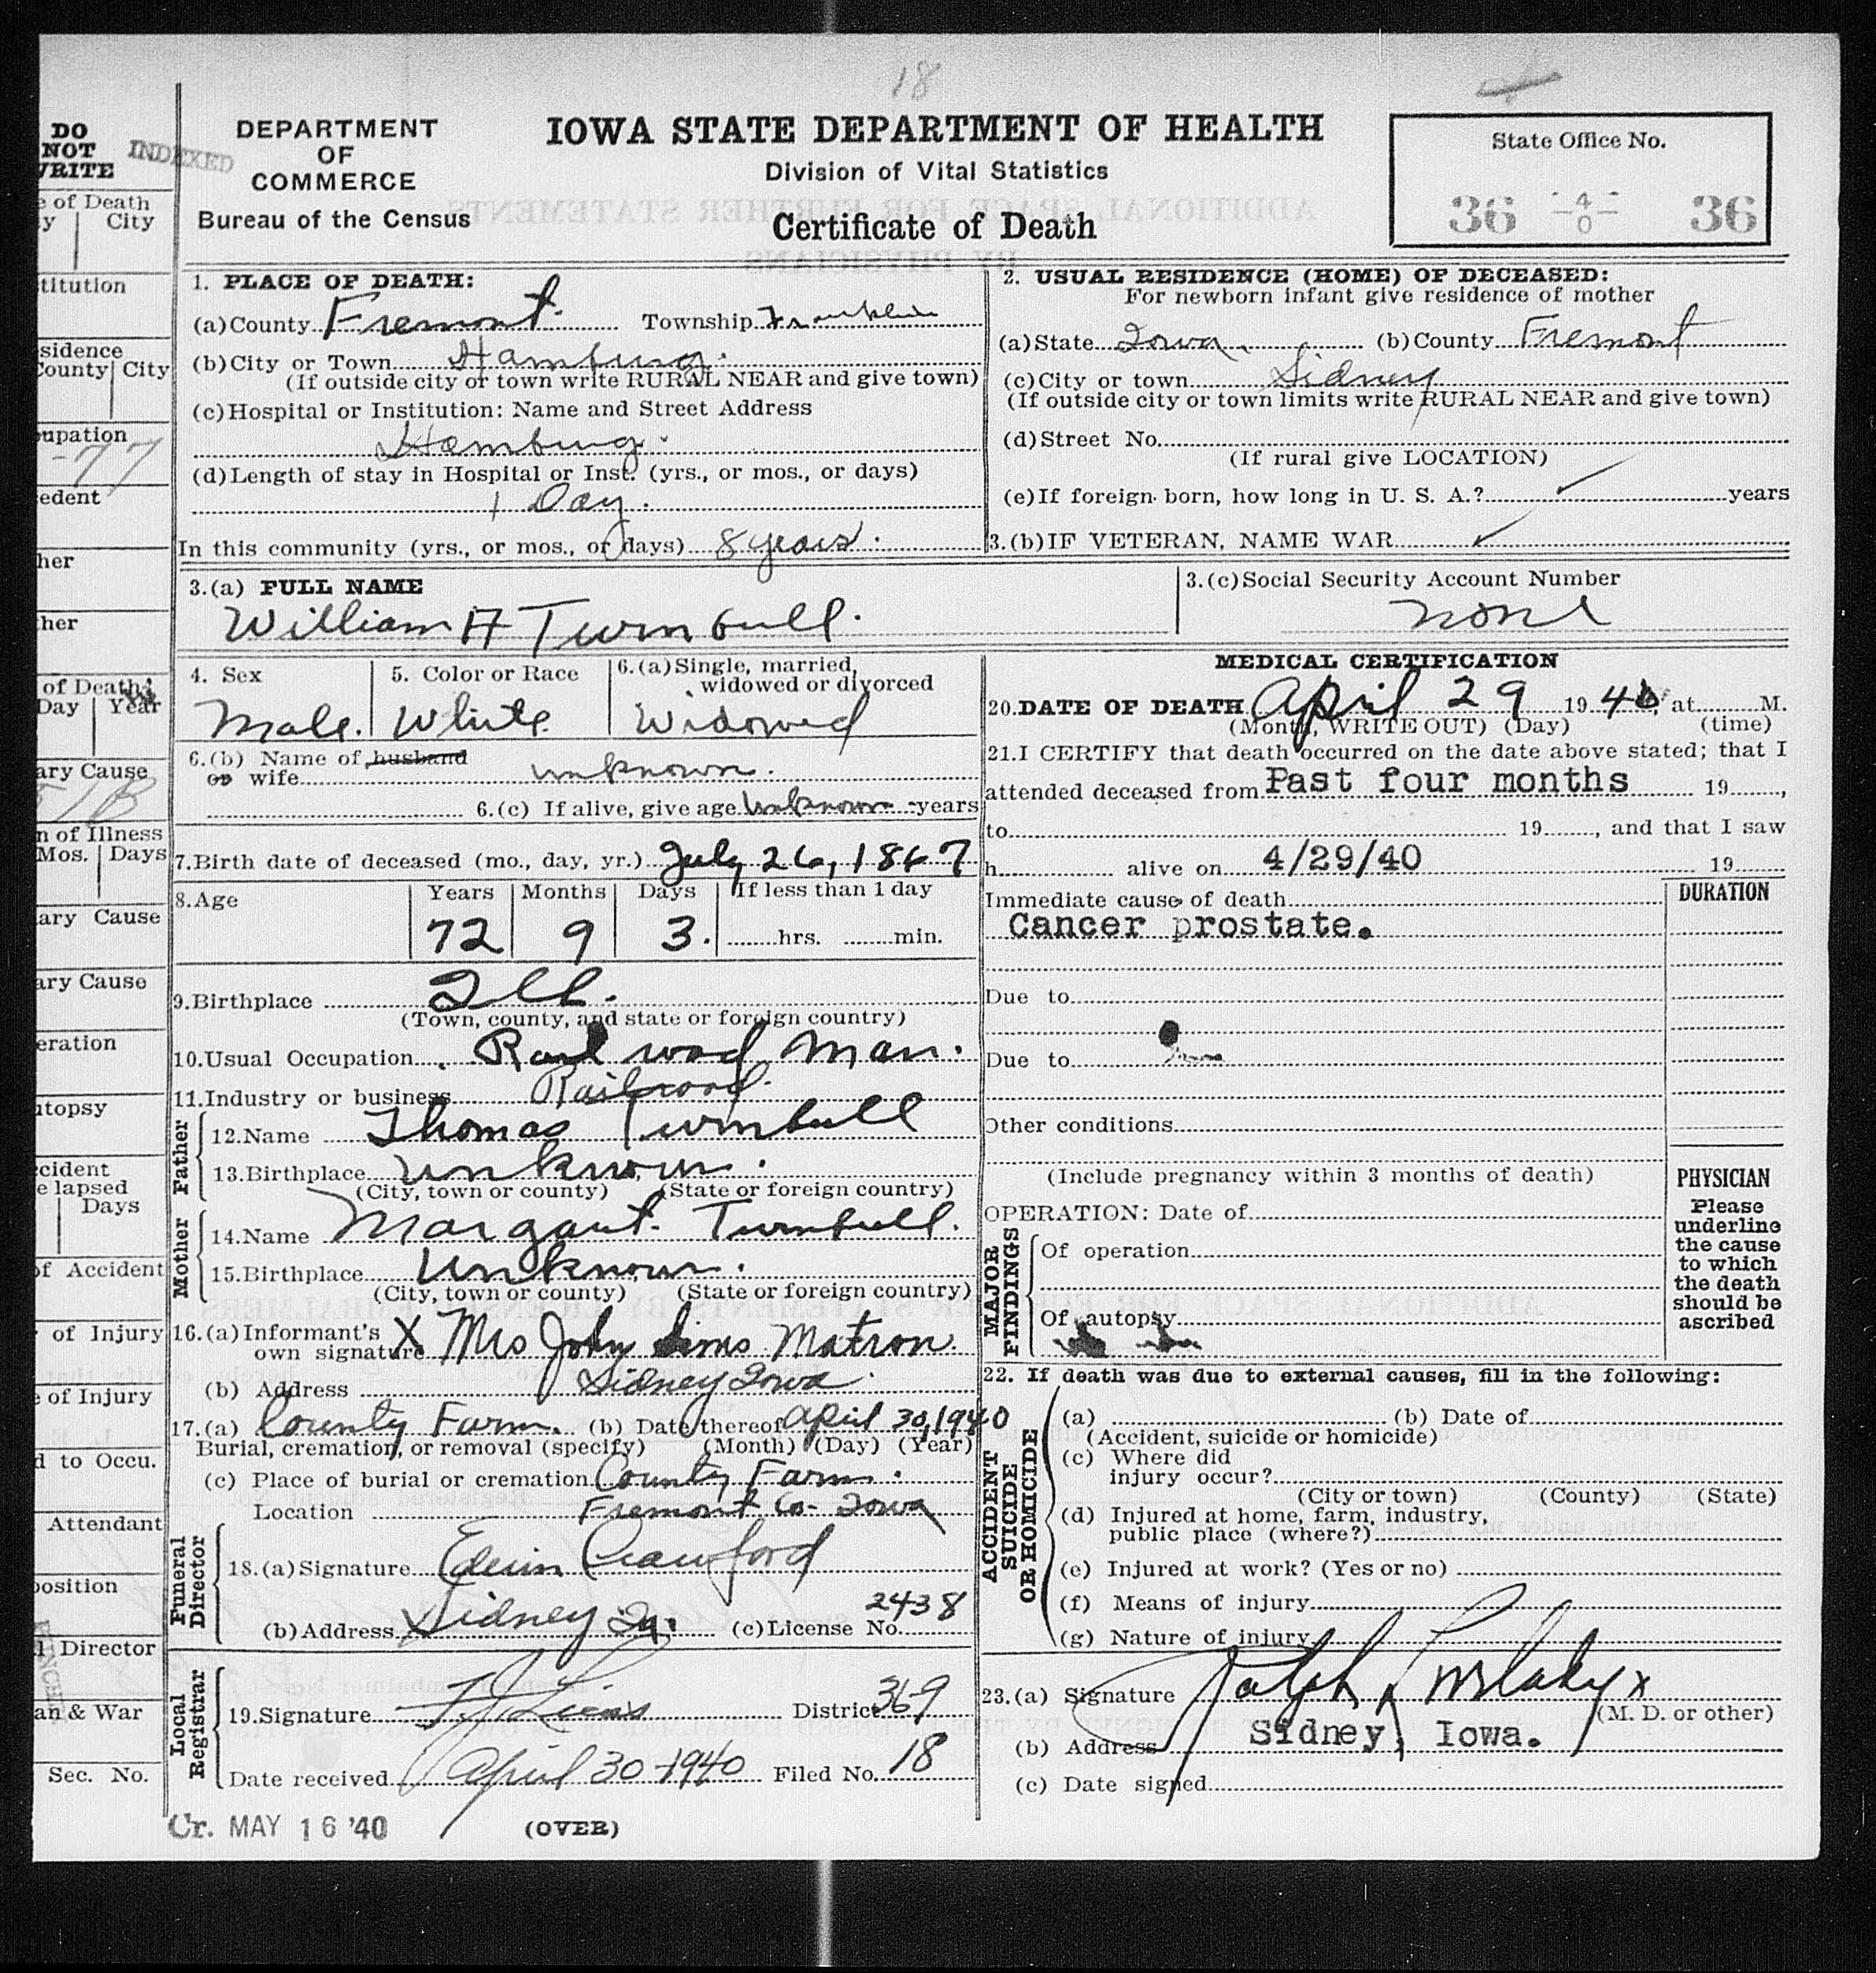 18
DO
NOT
WRITE
INDEXED
DEPARTMENT
OF
COMMERCE
Bureau of the Census
IOWA STATE DEPARTMENT OF HEALTH
Division of Vital Statistics
Certificate of Death
State Office No.
36 -4- 36
0
1. PLACE OF DEATH:
(a) County Fremont. Township Franklin
(b) City or Town Hamburg.
(If outside city or town write RURAL NEAR and give town)
(c) Hospital or Institution: Name and Street Address
Hamburg.
(d) Length of stay in Hospital or Inst. (yrs., or mos., or days)
1 Day.
In this community (yrs., or mos., or days) 8 years.
2. USUAL RESIDENCE (HOME) OF DECEASED:
For newborn infant give residence of mother
(a) State Iowa. (b) County Fremont
(c) City or town Sidney
(If outside city or town limits write RURAL NEAR and give town)
(d) Street No.
(If rural give LOCATION)
(e) If foreign born, how long in U. S. A.? ✓ years
3.(b) IF VETERAN, NAME WAR ✓
3.(a) FULL NAME
William H Turnbull.
3.(c) Social Security Account Number
none
4. Sex
Male.
5. Color or Race
White
6.(a) Single, married,
widowed or divorced
Widowed
6.(b) Name of husband
or wife unknown.
6.(c) If alive, give age unknown years
7. Birth date of deceased (mo., day, yr.) July 26, 1867
8. Age Years Months Days If less than 1 day
72 9 3. hrs. min.
9. Birthplace Ill.
(Town, county, and state or foreign country)
10. Usual Occupation Rail road Man.
11. Industry or business Railroad.
Father
12. Name Thomas Turnbull
13. Birthplace unknown.
(City, town or county) (State or foreign country)
Mother
14. Name Margaut. Turnbull.
15. Birthplace Unknown.
(City, town or county) (State or foreign country)
16.(a) Informant's
own signature X Mrs John Sims Matron.
(b) Address Sidney Iowa.
17.(a) County Farm. (b) Date thereof April 30, 1940
Burial, cremation, or removal (specify) (Month) (Day) (Year)
(c) Place of burial or cremation County Farm.
Location Fremont Co- Iowa
Funeral
Director
18.(a) Signature Edwin Crawford
(b) Address Sidney Ia. (c) License No. 2438
Local
Registrar
19. Signature District 369
Date received April 30-1940 Filed No. 18
Cr. MAY 16 '40
(OVER)
MEDICAL CERTIFICATION
20. DATE OF DEATH April 29 1940, at M.
(Month, WRITE OUT) (Day) (time)
21. I CERTIFY that death occurred on the date above stated; that I
attended deceased from Past four months 19 ,
to 19 , and that I saw
h alive on 4/29/40 19
Immediate cause of death DURATION
Cancer prostate.
Due to
Due to
Other conditions
(Include pregnancy within 3 months of death)
OPERATION: Date of
MAJOR
FINDINGS
Of operation
Of autopsy
PHYSICIAN
Please
underline
the cause
to which
the death
should be
ascribed
22. If death was due to external causes, fill in the following:
ACCIDENT
SUICIDE
OR HOMICIDE
(a) (b) Date of
(Accident, suicide or homicide)
(c) Where did
injury occur?
(City or town) (County) (State)
(d) Injured at home, farm, industry,
public place (where?)
(e) Injured at work? (Yes or no)
(f) Means of injury
(g) Nature of injury
23.(a) Signature Ralph
(M. D. or other)
(b) Address Sidney, Iowa.
(c) Date signed
e of Death
y City
titution
sidence
County City
upation
-77
edent
her
her
of Death
Day Year
ary Cause
n of Illness
Mos. Days
ary Cause
ary Cause
eration
topsy
cident
e lapsed
Days
of Accident
of Injury
e of Injury
d to Occu.
Attendant
position
l Director
an & War
Sec. No.